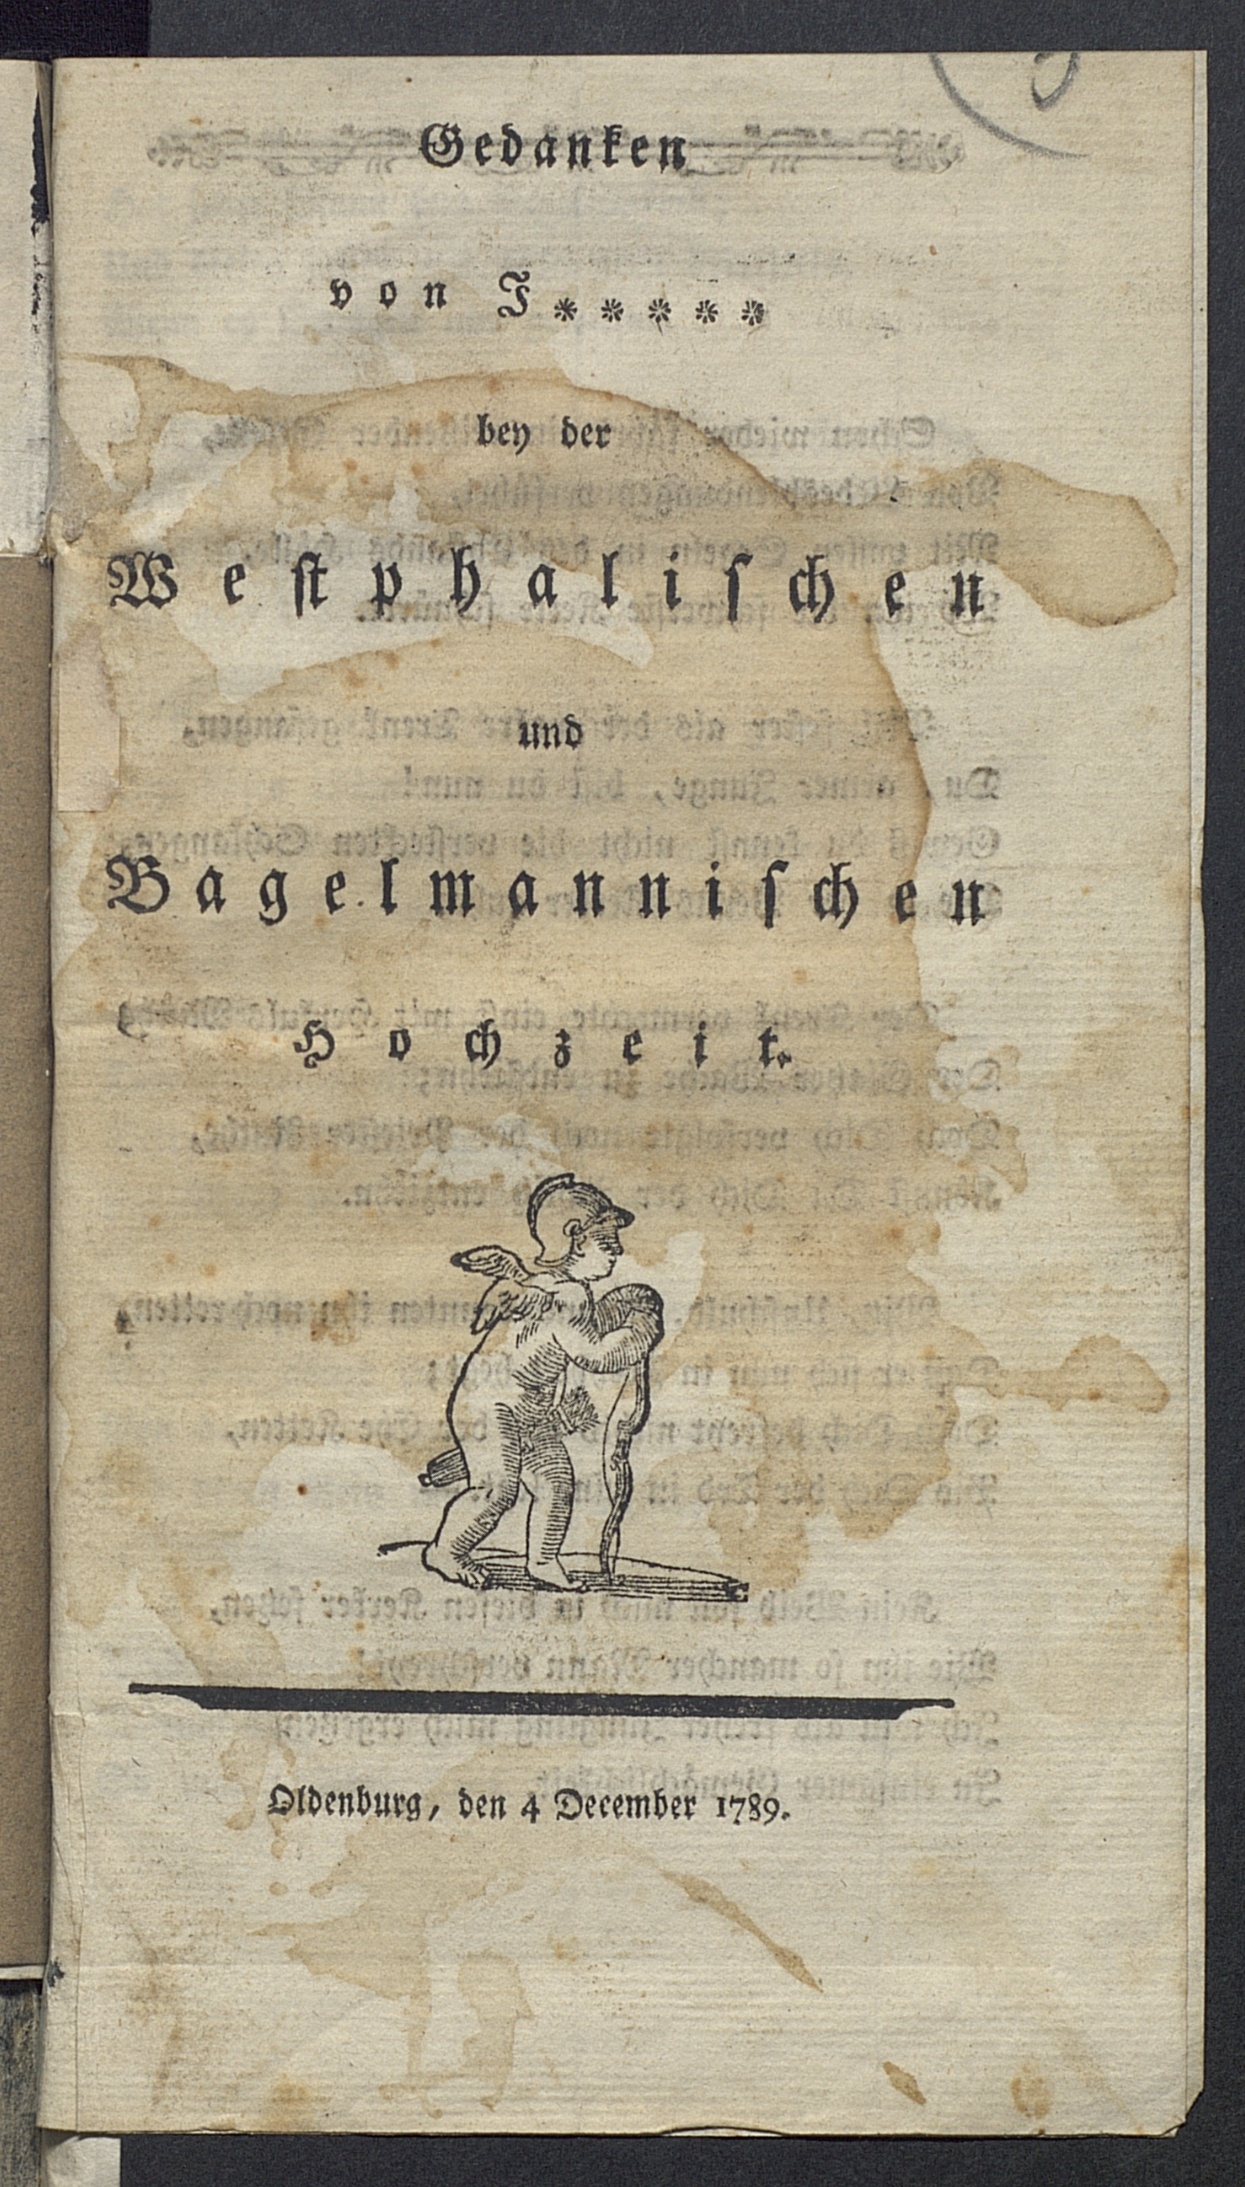 Gedanken
von J*****
bey der
Westphalischen
und
Bagelmannischen
Hochzeit.
Oldenburg, den 4 December 1789.